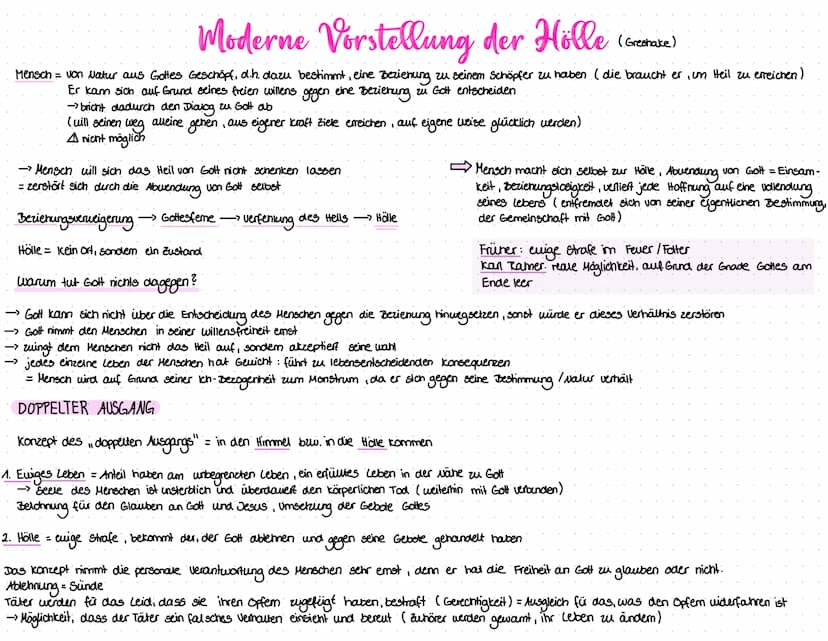 Moderne Vorstellung der Hölle (Greshake)
Mensch = von Natur aus Gottes Geschöpf, d.h. dazu bestimmt, eine Beziehung zu seinem Schöpfer zu haben (die braucht er, um Heil zu erreichen)
Er kann sich auf Grund seines freien Willens gegen eine Beziehung zu Gott entscheiden
→ bricht dadurch den Dialog zu Gott ab
(will seinen Weg alleine gehen, aus eigener Kraft Ziele erreichen, auf eigene Weise glücklich werden)
⚠ nicht möglich
→ Mensch will sich das Heil von Gott nicht schenken lassen
= zerstört sich durch die Abwendung von Gott selbst
Beziehungsverweigerung → Gottesferne → Verfehlung des Heils → Hölle
Hölle = Kein Ort, sondern ein Zustand
Warum tut Gott nichts dagegen?
⇨ Mensch macht sich selbst zur Hölle, Abwendung von Gott = Einsam-
keit, Beziehungslosigkeit, verliert jede Hoffnung auf eine Vollendung
seines Lebens (entfremdet sich von seiner eigentlichen Bestimmung,
der Gemeinschaft mit Gott)
Früher: ewige Strafe im Feuer / Folter
Karl Rahner: reale Möglichkeit, auf Grund der Gnade Gottes am
Ende leer
→ Gott kann sich nicht über die Entscheidung des Menschen gegen die Beziehung hinwegsetzen, sonst würde er dieses Verhältnis zerstören
→ Gott nimmt den Menschen in seiner Willensfreiheit ernst
→ zwingt dem Menschen nicht das Heil auf, sondern akzeptiert seine Wahl
→ jedes einzelne Leben der Menschen hat Gewicht: führt zu lebensentscheidenden Konsequenzen
= Mensch wird auf Grund seiner Ich-Bezogenheit zum Monstrum, da er sich gegen seine Bestimmung / Natur verhält
DOPPELTER AUSGANG
Konzept des „doppelten Ausgangs" = in den Himmel bzw. in die Hölle kommen
1. Ewiges Leben = Anteil haben am unbegrenzten Leben, ein erfülltes Leben in der Nähe zu Gott
→ Seele des Menschen ist unsterblich und überdauert den körperlichen Tod (weiterhin mit Gott verbunden)
Belohnung für den Glauben an Gott und Jesus, Umsetzung der Gebote Gottes
2. Hölle = ewige Strafe, bekommt der, der Gott ablehnen und gegen seine Gebote gehandelt haben
Das Konzept nimmt die personale Verantwortung des Menschen sehr ernst, denn er hat die Freiheit an Gott zu glauben oder nicht.
Ablehnung = Sünde
Täter werden für das Leid, dass sie ihren Opfern zugefügt haben, bestraft (Gerechtigkeit) = Ausgleich für das, was den Opfern widerfahren ist
→ Möglichkeit, dass der Täter sein falsches Verhalten einsieht und bereut (Zuhörer werden gewarnt, ihr Leben zu ändern)